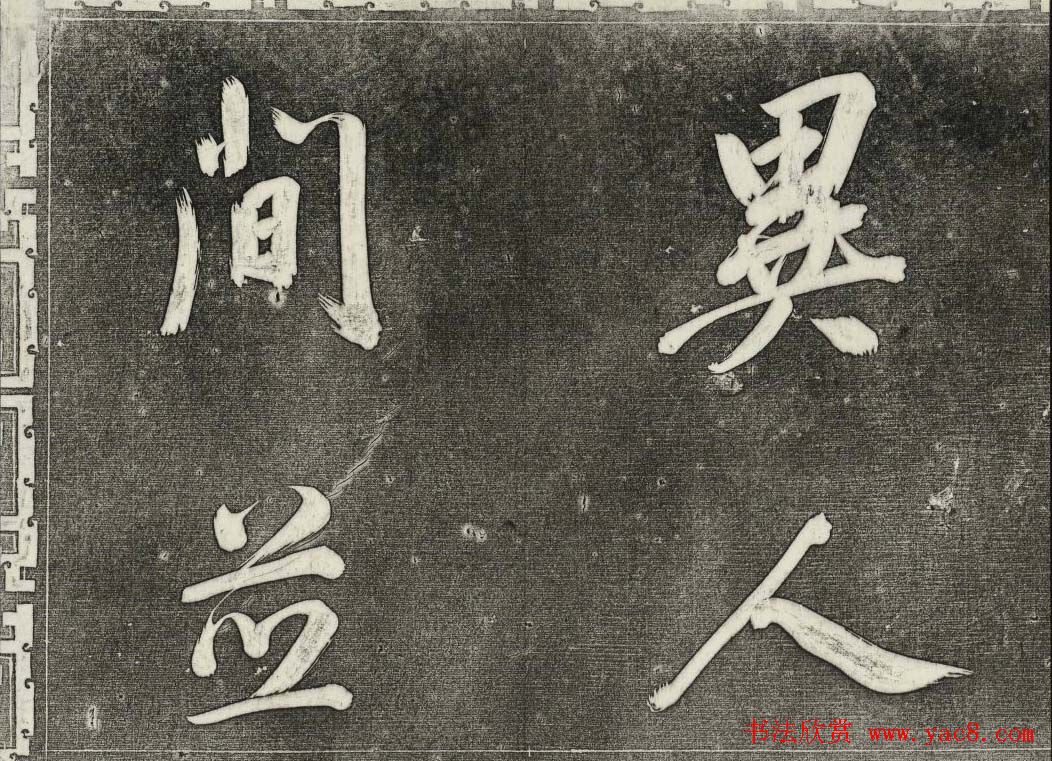 異人
間並
书法欣赏 www.yac8.com